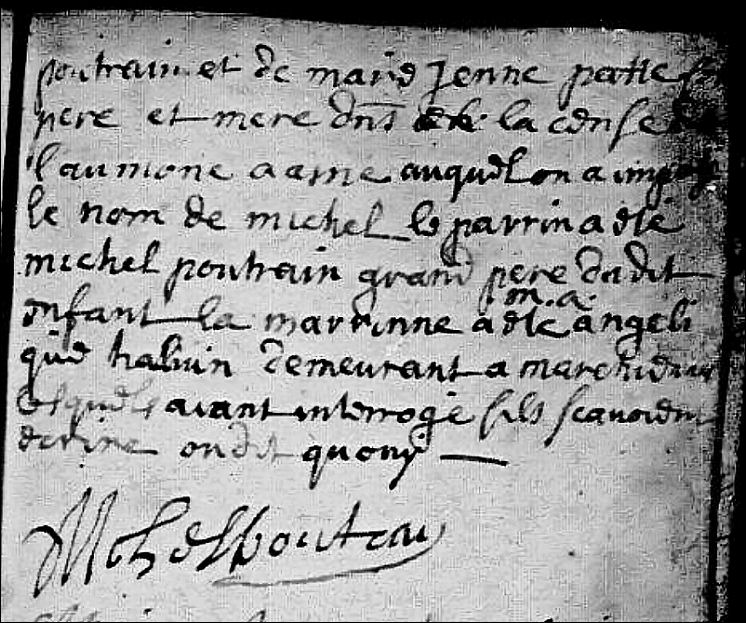 poutrain et de marie Jenne patte
pere et mere dns de la cense
l'aumone a asne auquel on a impo
le nom de michel le parrin a ete
michel poutrain grand pere dudit
m. a.
enfant la marrinne a ete angeli
que haluin demeurant a marchie
lesquels aiant interroge sils scavoient
ecrire on dit quouy
Michel poutrain